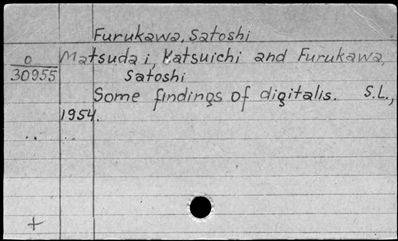 Furukawa, Satoshi
O
30955
Matsuda i, Katsuichi and Furukawa,
Satoshi
Some findings of digitalis. S.L.,
1954.
+